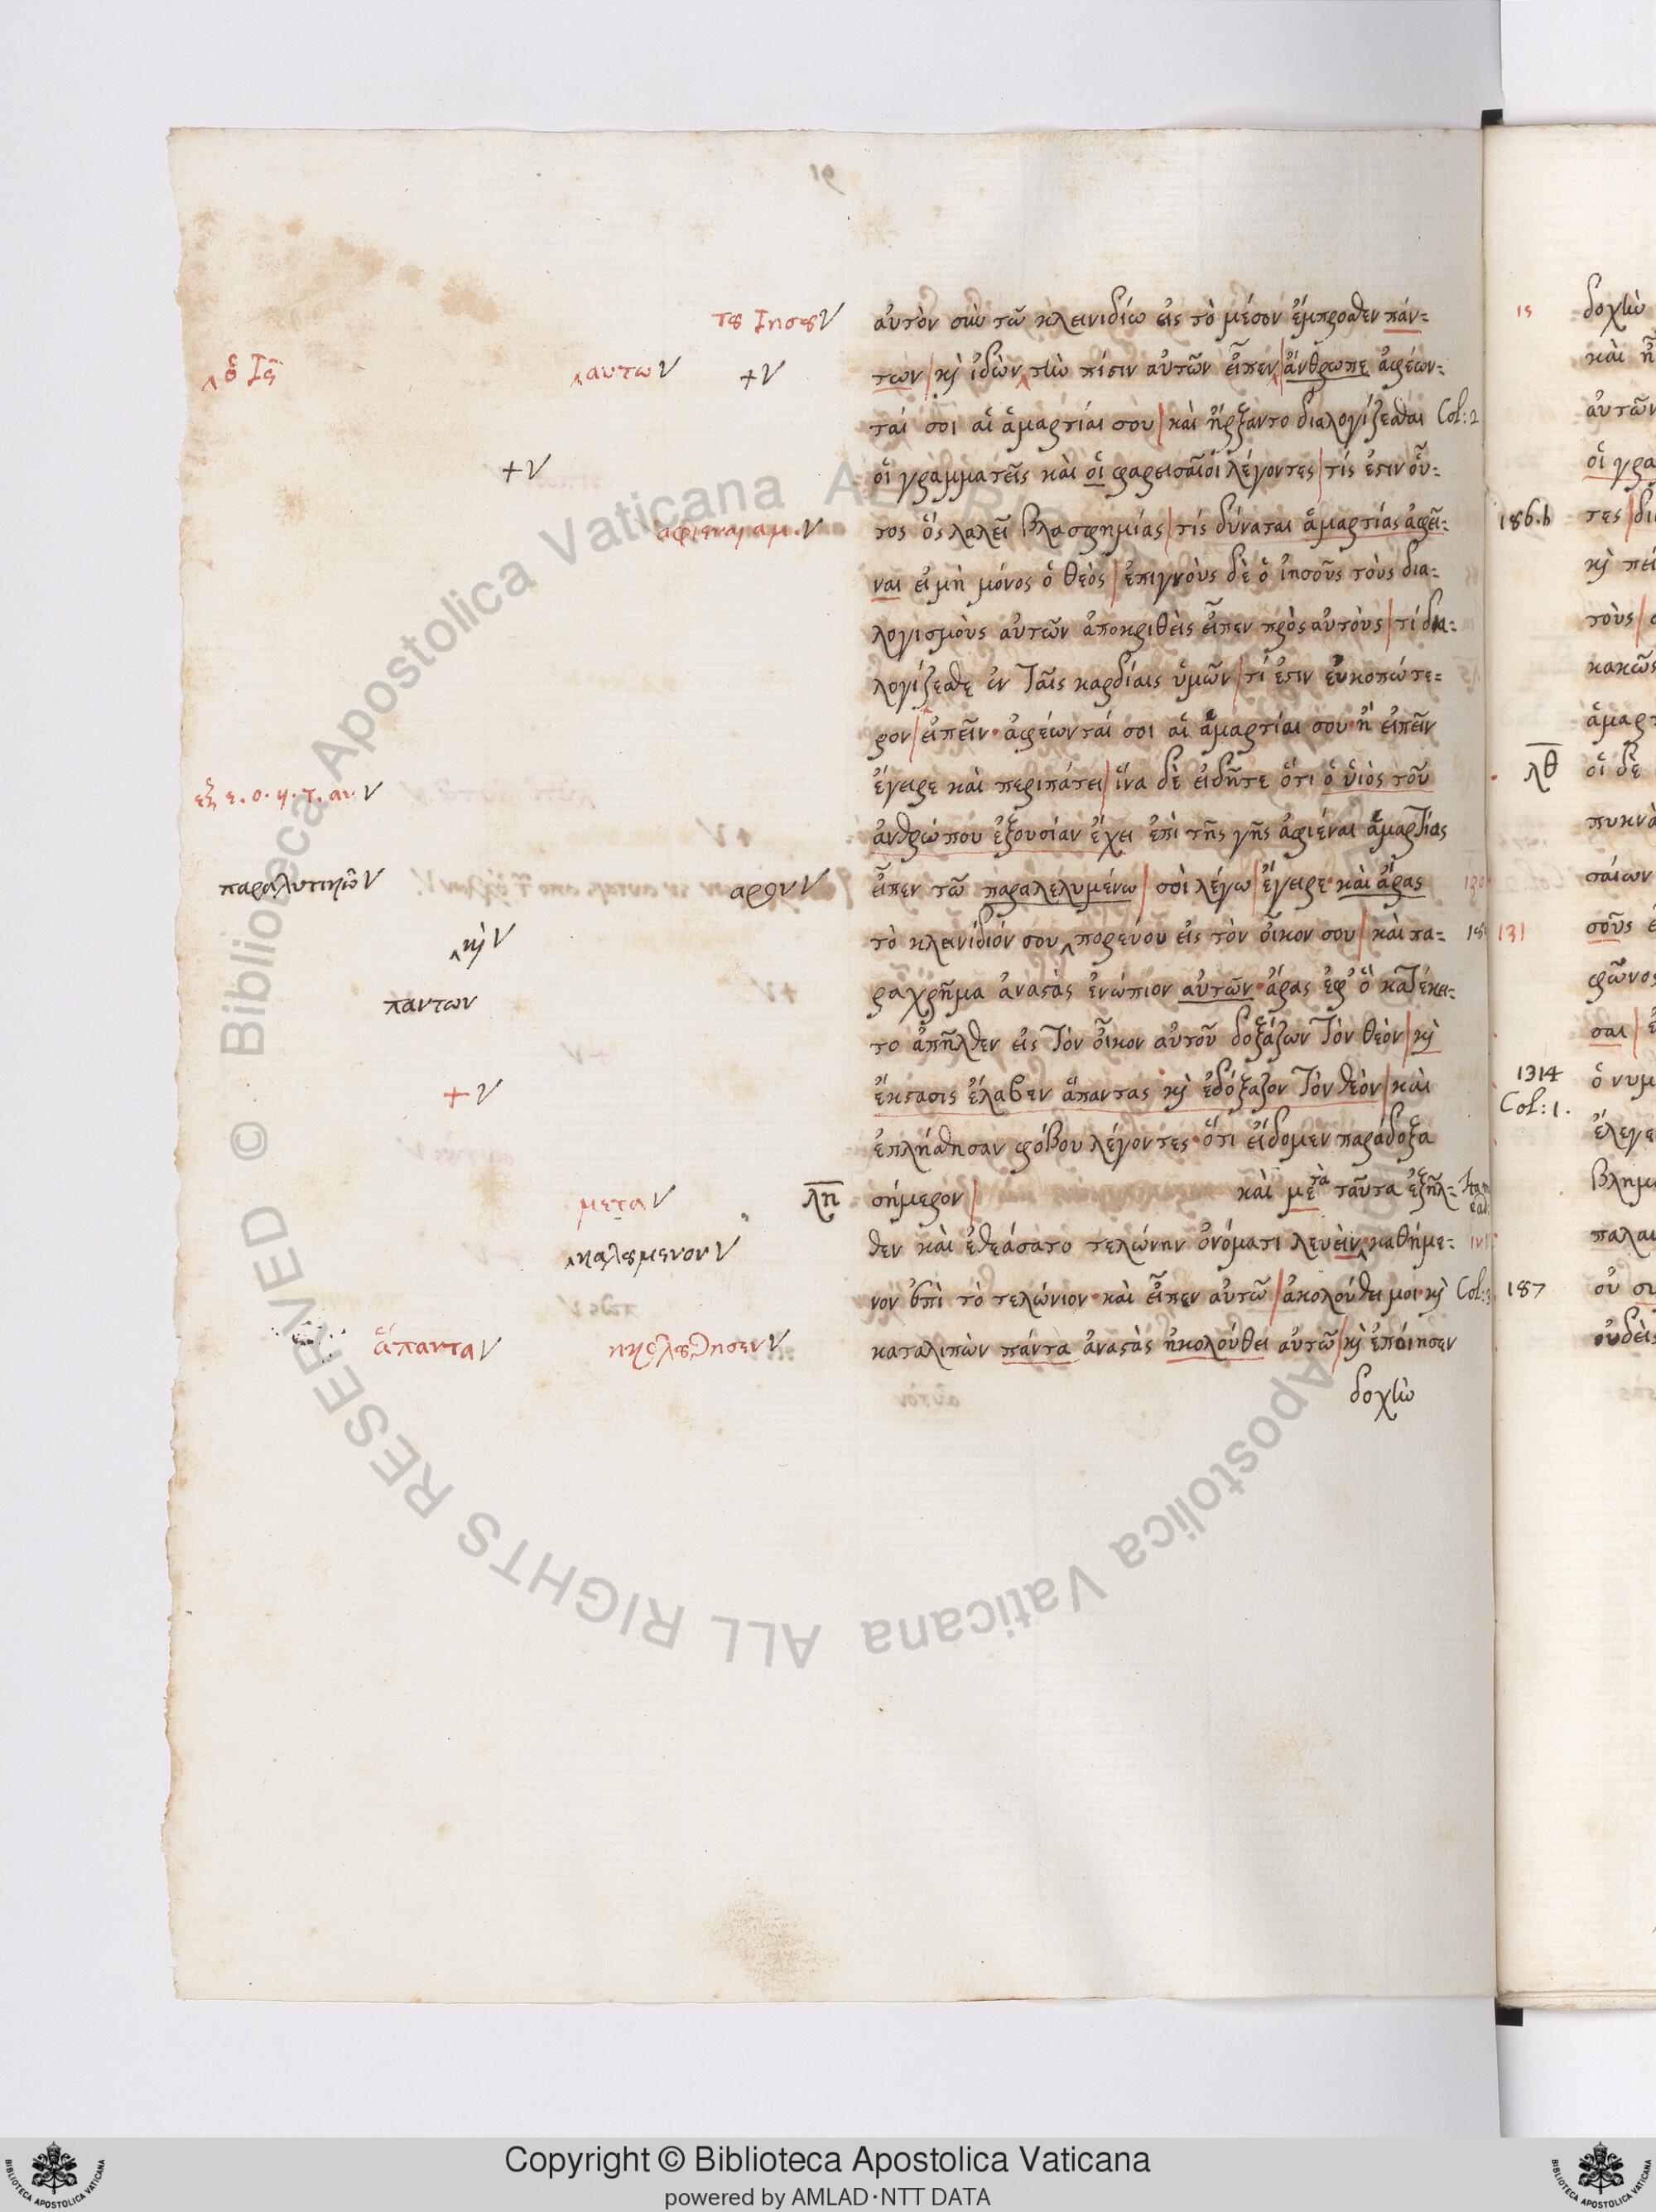 91
τȣ Ιησȣ V αὐτὸν σὺν τῶ κλεινιδίω εἰς τὸ μέσον ἔμπροσθεν πάν=
‸ ὁ Ις ‸ αυτω V + V των / κỳ ἰδὼν ‸ τὴν πίστιν αὐτῶν εἶπεν ‸ / ἄνθρωπε ἀφέων=
ταί σοι αἱ ἁμαρτίαι σου / καὶ ἤρξαντο διαλογίζεσθαι Col: 2
+ V οἱ γραμματεῖς καὶ οἱ φαρεισαῖοι λέγοντες / τίς ἐστιν οὗ=
αφιεναι αμ. V τος ὅς λαλεῖ βλασφημίας / τίς δύναται ἁμαρτίας ἀφεῖ=
ναι εἰ μὴ μόνος ὁ θεὸς / ἐπιγνοὺς δὲ ὁ ἰησοῦς τοὺς δια=
λογισμοὺς αὐτῶν ἀποκριθεὶς εἶπεν πρὸς αὐτοὺς / τί δια=
λογίζεσθε ἐν ταῖς καρδίαις ὑμῶν / τί ἐστιν εὐκοπώτε=
ρον / εἰπεῖν · ἀφέωνταί σοι αἱ ἁμαρτίαι σου · ἢ εἰπεῖν
εξ. ε. ο. υ. τ. αν. V ἔγειρε καὶ περιπάτει / ἵνα δὲ εἰδῆτε ὅτι ὁ ὑιὸς τοῦ
ἀνθρώπου ἐξουσίαν ἔχει ἐπὶ τῆς γῆς ἀφιέναι ἁμαρτίας
παραλυτικῶ V αρον V εἶπεν τῶ παραλελυμένω / σοὶ λέγω / ἔγειρε · καὶ ἄρας 130
‸ κỳ V τὸ κλεινίδιόν σου ‸ πορεύου εἰς τὸν οἶκον σου / καὶ πα=
παντων ραχρῆμα ἀναστὰς ἐνώπιον αὐτῶν · ἄρας ἐφ᾽ ὃ κατέκει=
το ἀπῆλθεν εἰς τὸν οἶκον αὐτοῦ δοξάζων τὸν θεὸν / κỳ
+ V ἔκστασις ἔλαβεν ἅπαντας κỳ ἐδόξαζον τὸν θεὸν / καὶ
ἐπλήσθησαν φόβου λέγοντες · ὅτι εἴδομεν παράδοξα
μετα V λη σήμερον / καὶ μετὰ ταῦτα ἐξῆλ=
‸ καλȣμενον V θεν καὶ ἐθεάσατο τελώνην ὀνόματι λευεὶν ‸ καθήμε=
νον ἐπὶ τὸ τελώνιον · καὶ εἶπεν αὐτῶ / ἀκολούθει μοι · κỳ Col: 3
ἅπαντα V ηκολȣθησεν V καταλιπὼν πάντα ἀναστὰς ἠκολούθει αὐτῶ / κỳ ἐποίησεν
δοχὴν
δοχὴν
καὶ
αὐτῶν
οἱ γρα
186.b τες /
κỳ πει
τοὺς /
κακῶς
ἁμαρτ
λθ οἱ δὲ
πυκνὰ
σαίων
131 σοῦς
φῶνος
σαι /
1314
Col: 1. ὁ νυμ
ἔλεγε
βλημ
παλαι
187 οὐ
οὐδεὶς
© Biblioteca Apostolica Vaticana ALL RIGHTS RESERVED
Copyright © Biblioteca Apostolica Vaticana
powered by AMLAD·NTT DATA
BIBLIOTECA APOSTOLICA VATICANA
BIBLIOTECA APOSTOLICA VATICANA